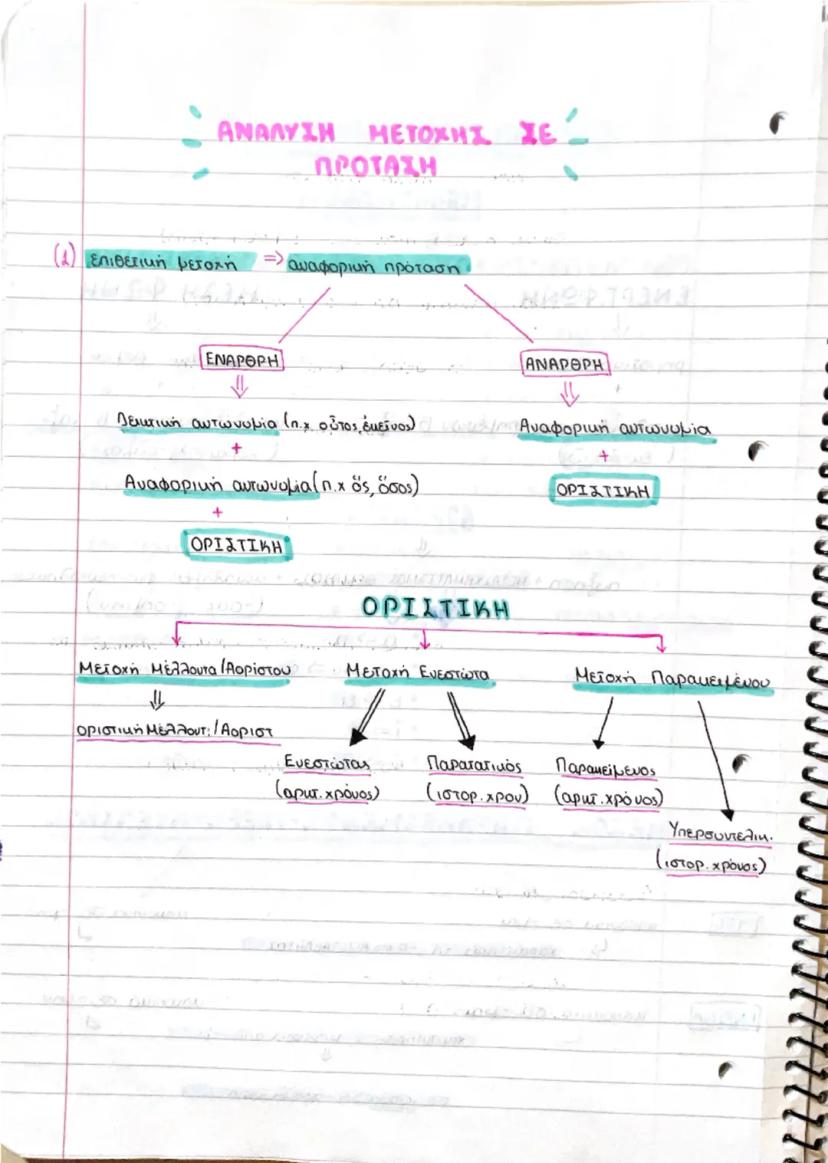 ΑΝΑΛΥΣΗ ΜΕΤΟΧΗΣ ΣΕ
ΠΡΟΤΑΣΗ
(1) επιθετική μετοχή => αναφορική πρόταση
ΕΝΑΡΘΡΗ ΑΝΑΡΘΡΗ
Δεικτική αντωνυμία (π.χ. οὗτος, ἐκεῖνος) Αναφορική αντωνυμία
+ +
Αναφορική αντωνυμία (π.χ ὅς, ὅσος) ΟΡΙΣΤΙΚΗ
+
ΟΡΙΣΤΙΚΗ
ΟΡΙΣΤΙΚΗ
Μετοχή Μέλλοντα/Αορίστου Μετοχή Ενεστώτα Μετοχή Παρακειμένου
οριστική Μέλλοντ./Αοριστ
Ενεστώτας Παρατατικός Παρακείμενος
(αρκτ. χρόνος) (ιστορ. χρον) (αρκτ. χρόνος)
Υπερσυντελικ.
(ιστορ. χρόνος)